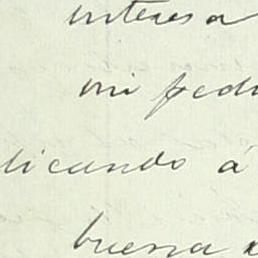 interesa
mi pedi
licando á
buena